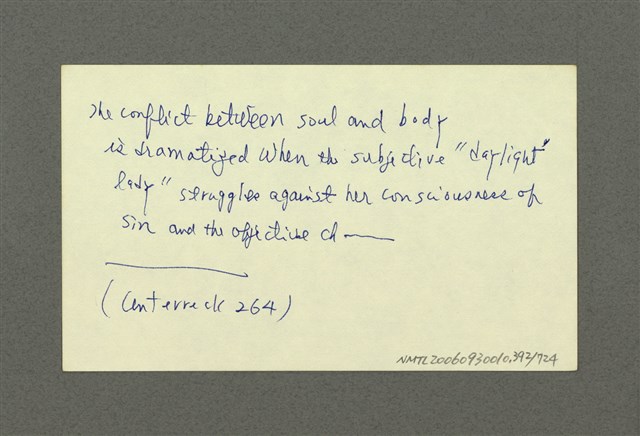 The conflict between soul and body
is dramatized when the subjective "daylight"
lady" struggles against her consciousness of
sin and the objective ch
(Unterreck 264)
NMTL20060930010.392/724